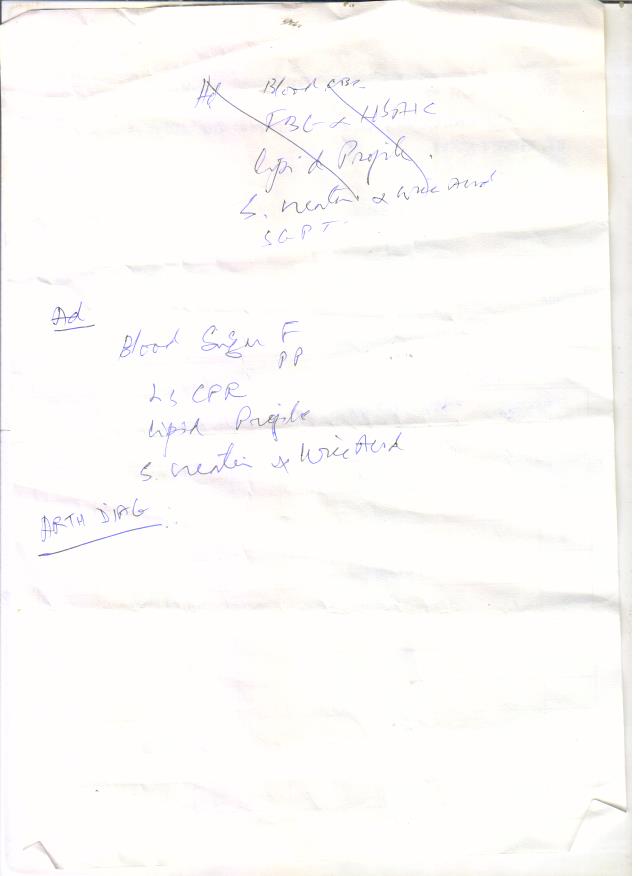 Ad Blood CBC
FBG & HbA1C
Lipid Profile.
S. Creatin & Uric Acid
SGPT
Ad
Blood Sugar F
PP
Lipid Profile
S. Creatin & Uric Acid
ARTH DIAG